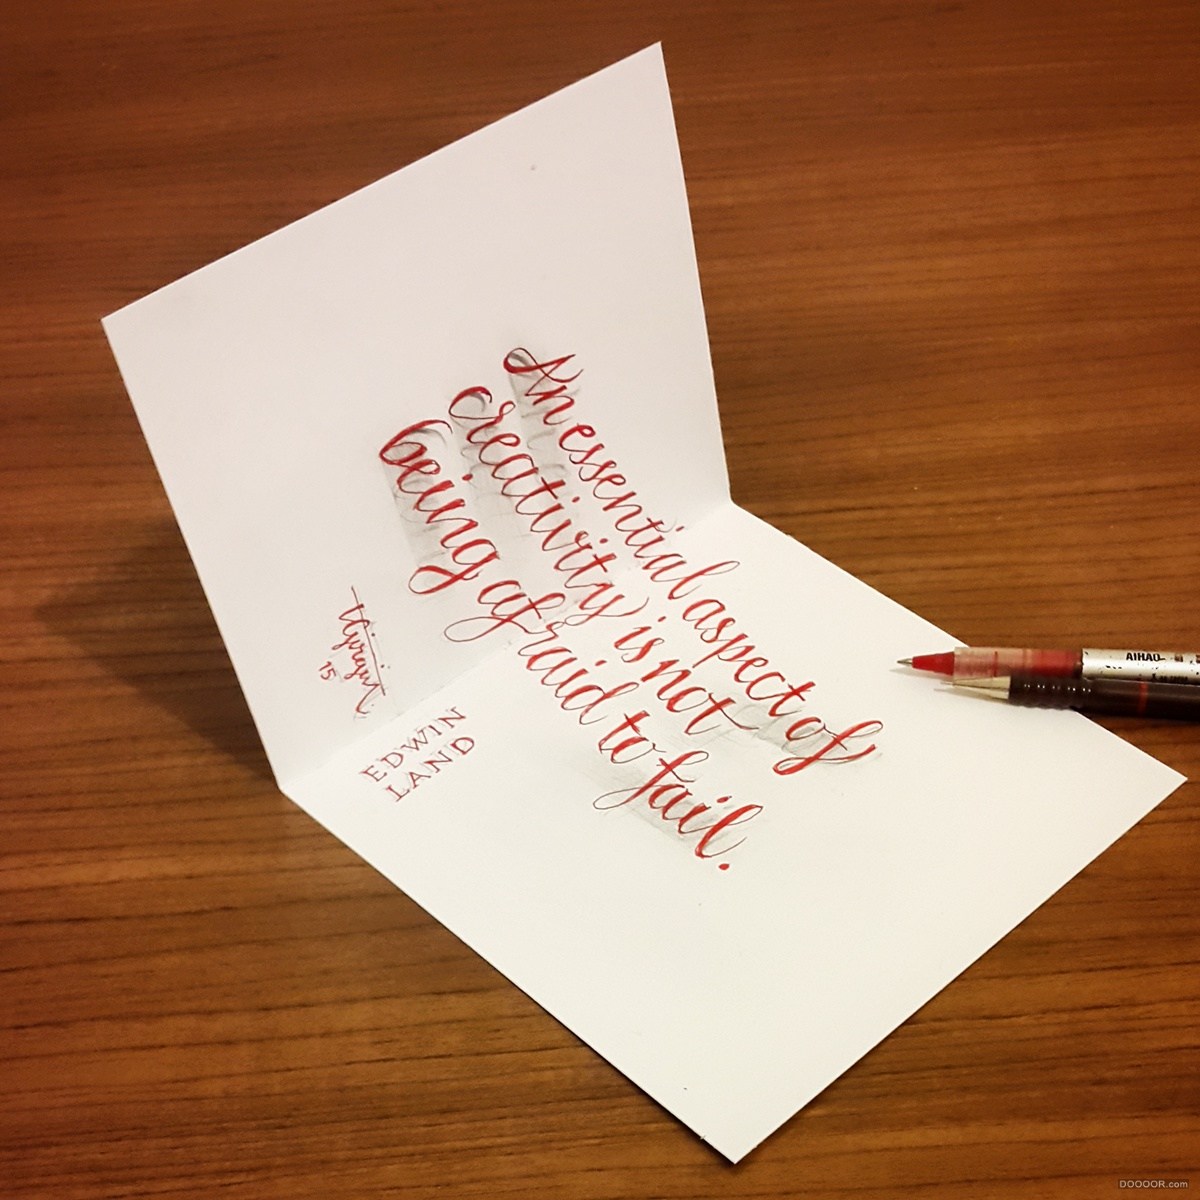 An essential aspect of
creativity is not
being afraid to fail.
EDWIN
LAND
15
AIHAO
DOOOOR.com